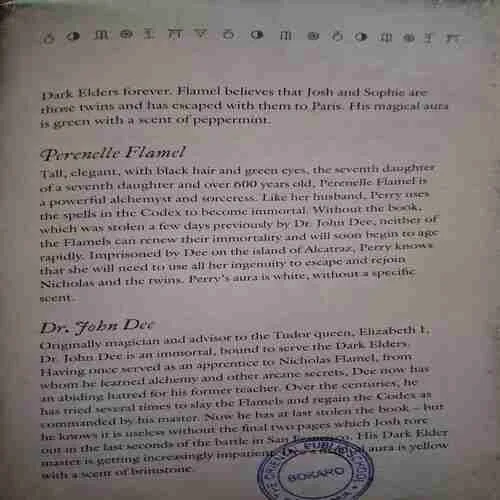 Dark Elders forever. Flamel believes that Josh and Sophie are
those twins and has escaped with them to Paris. His magical aura
is green with a scent of peppermint.
Perenelle Flamel
Tall, elegant, with black hair and green eyes, the seventh daughter
of a seventh daughter and over 600 years old, Perenelle Flamel is
a powerful alchemyst and sorceress. Like her husband, Perry uses
the spells in the Codex to become immortal. Without the book,
which was stolen a few days previously by Dr. John Dee, neither of
the Flamels can renew their immortality and will soon begin to age
rapidly. Imprisoned by Dee on the island of Alcatraz, Perry knows
that she will need to use all her ingenuity to escape and rejoin
Nicholas and the twins. Perry's aura is white, without a specific
scent.
Dr. John Dee
Originally magician and advisor to the Tudor queen, Elizabeth I,
Dr. John Dee is an immortal, bound to serve the Dark Elders.
Having once served as an apprentice to Nicholas Flamel, from
whom he learned alchemy and other arcane secrets, Dee now has
an abiding hatred for his former teacher. Over the centuries, he
has tried several times to slay the Flamels and regain the Codex as
commanded by his master. Now he has at last stolen the book – but
he knows it is useless without the final two pages which Josh tore
out in the last seconds of the battle in San Francisco. His Dark Elder
master is getting increasingly impatient. aura is yellow
with a scent of brimstone.
PUBLIC
BOKARO